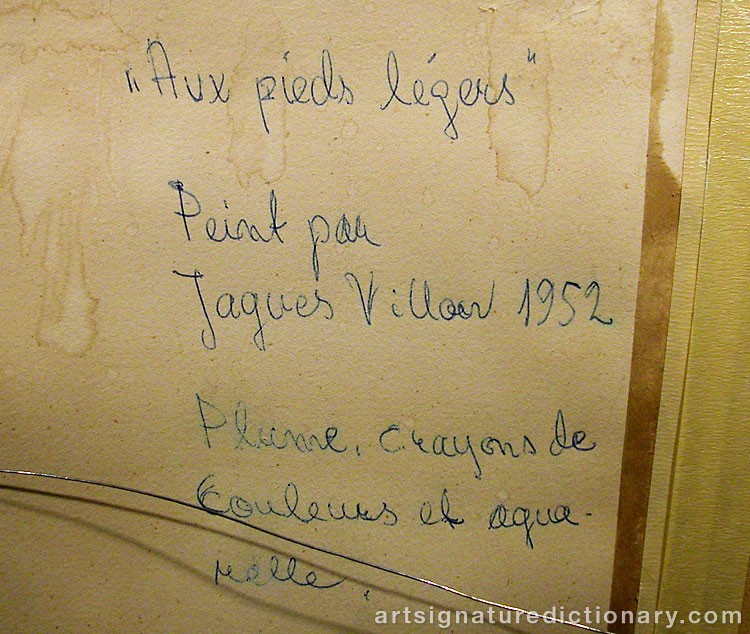 "Aux pieds légers"
Peint par
Jaques Villon 1952
Plume, crayons de
couleurs et aqua-
relle.
artsignaturedictionary.com